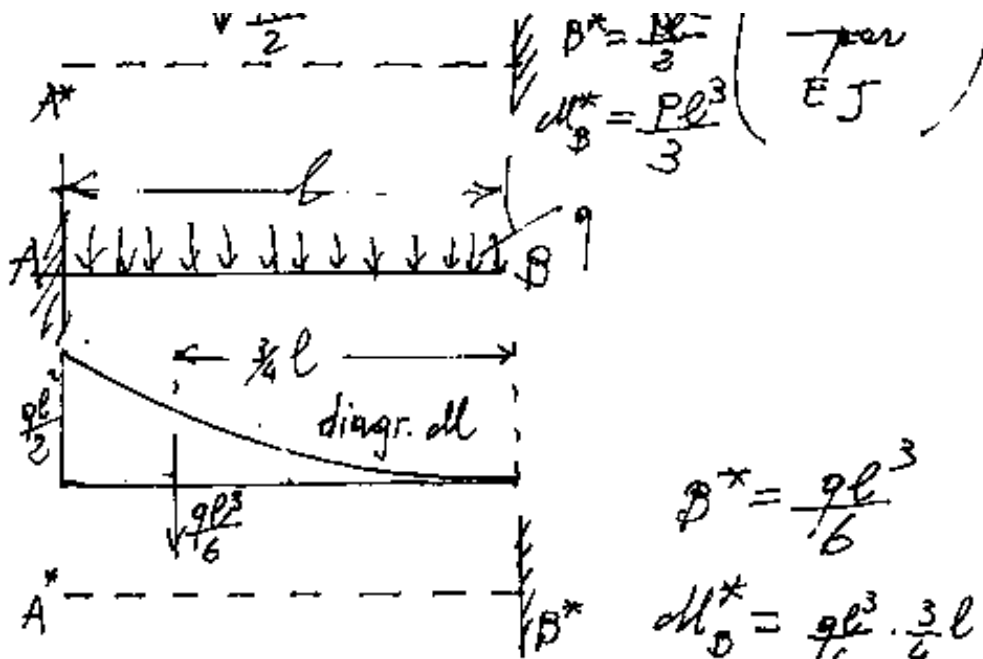 2
B* = Pl²/2
A*
M*_B = Pl³/3
EJ
l
A
B
q
3/4 l
ql²/2
diagr. M
ql³/6
B* = ql³/6
A*
B*
M*_B = ql³/6 · 3/4 l